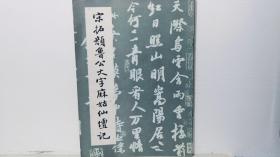 宋拓顏魯公大字麻姑仙壇記
天際烏雲含雨重樓前
紅日照山明嵩陽居士
今何在青眼看人萬里情